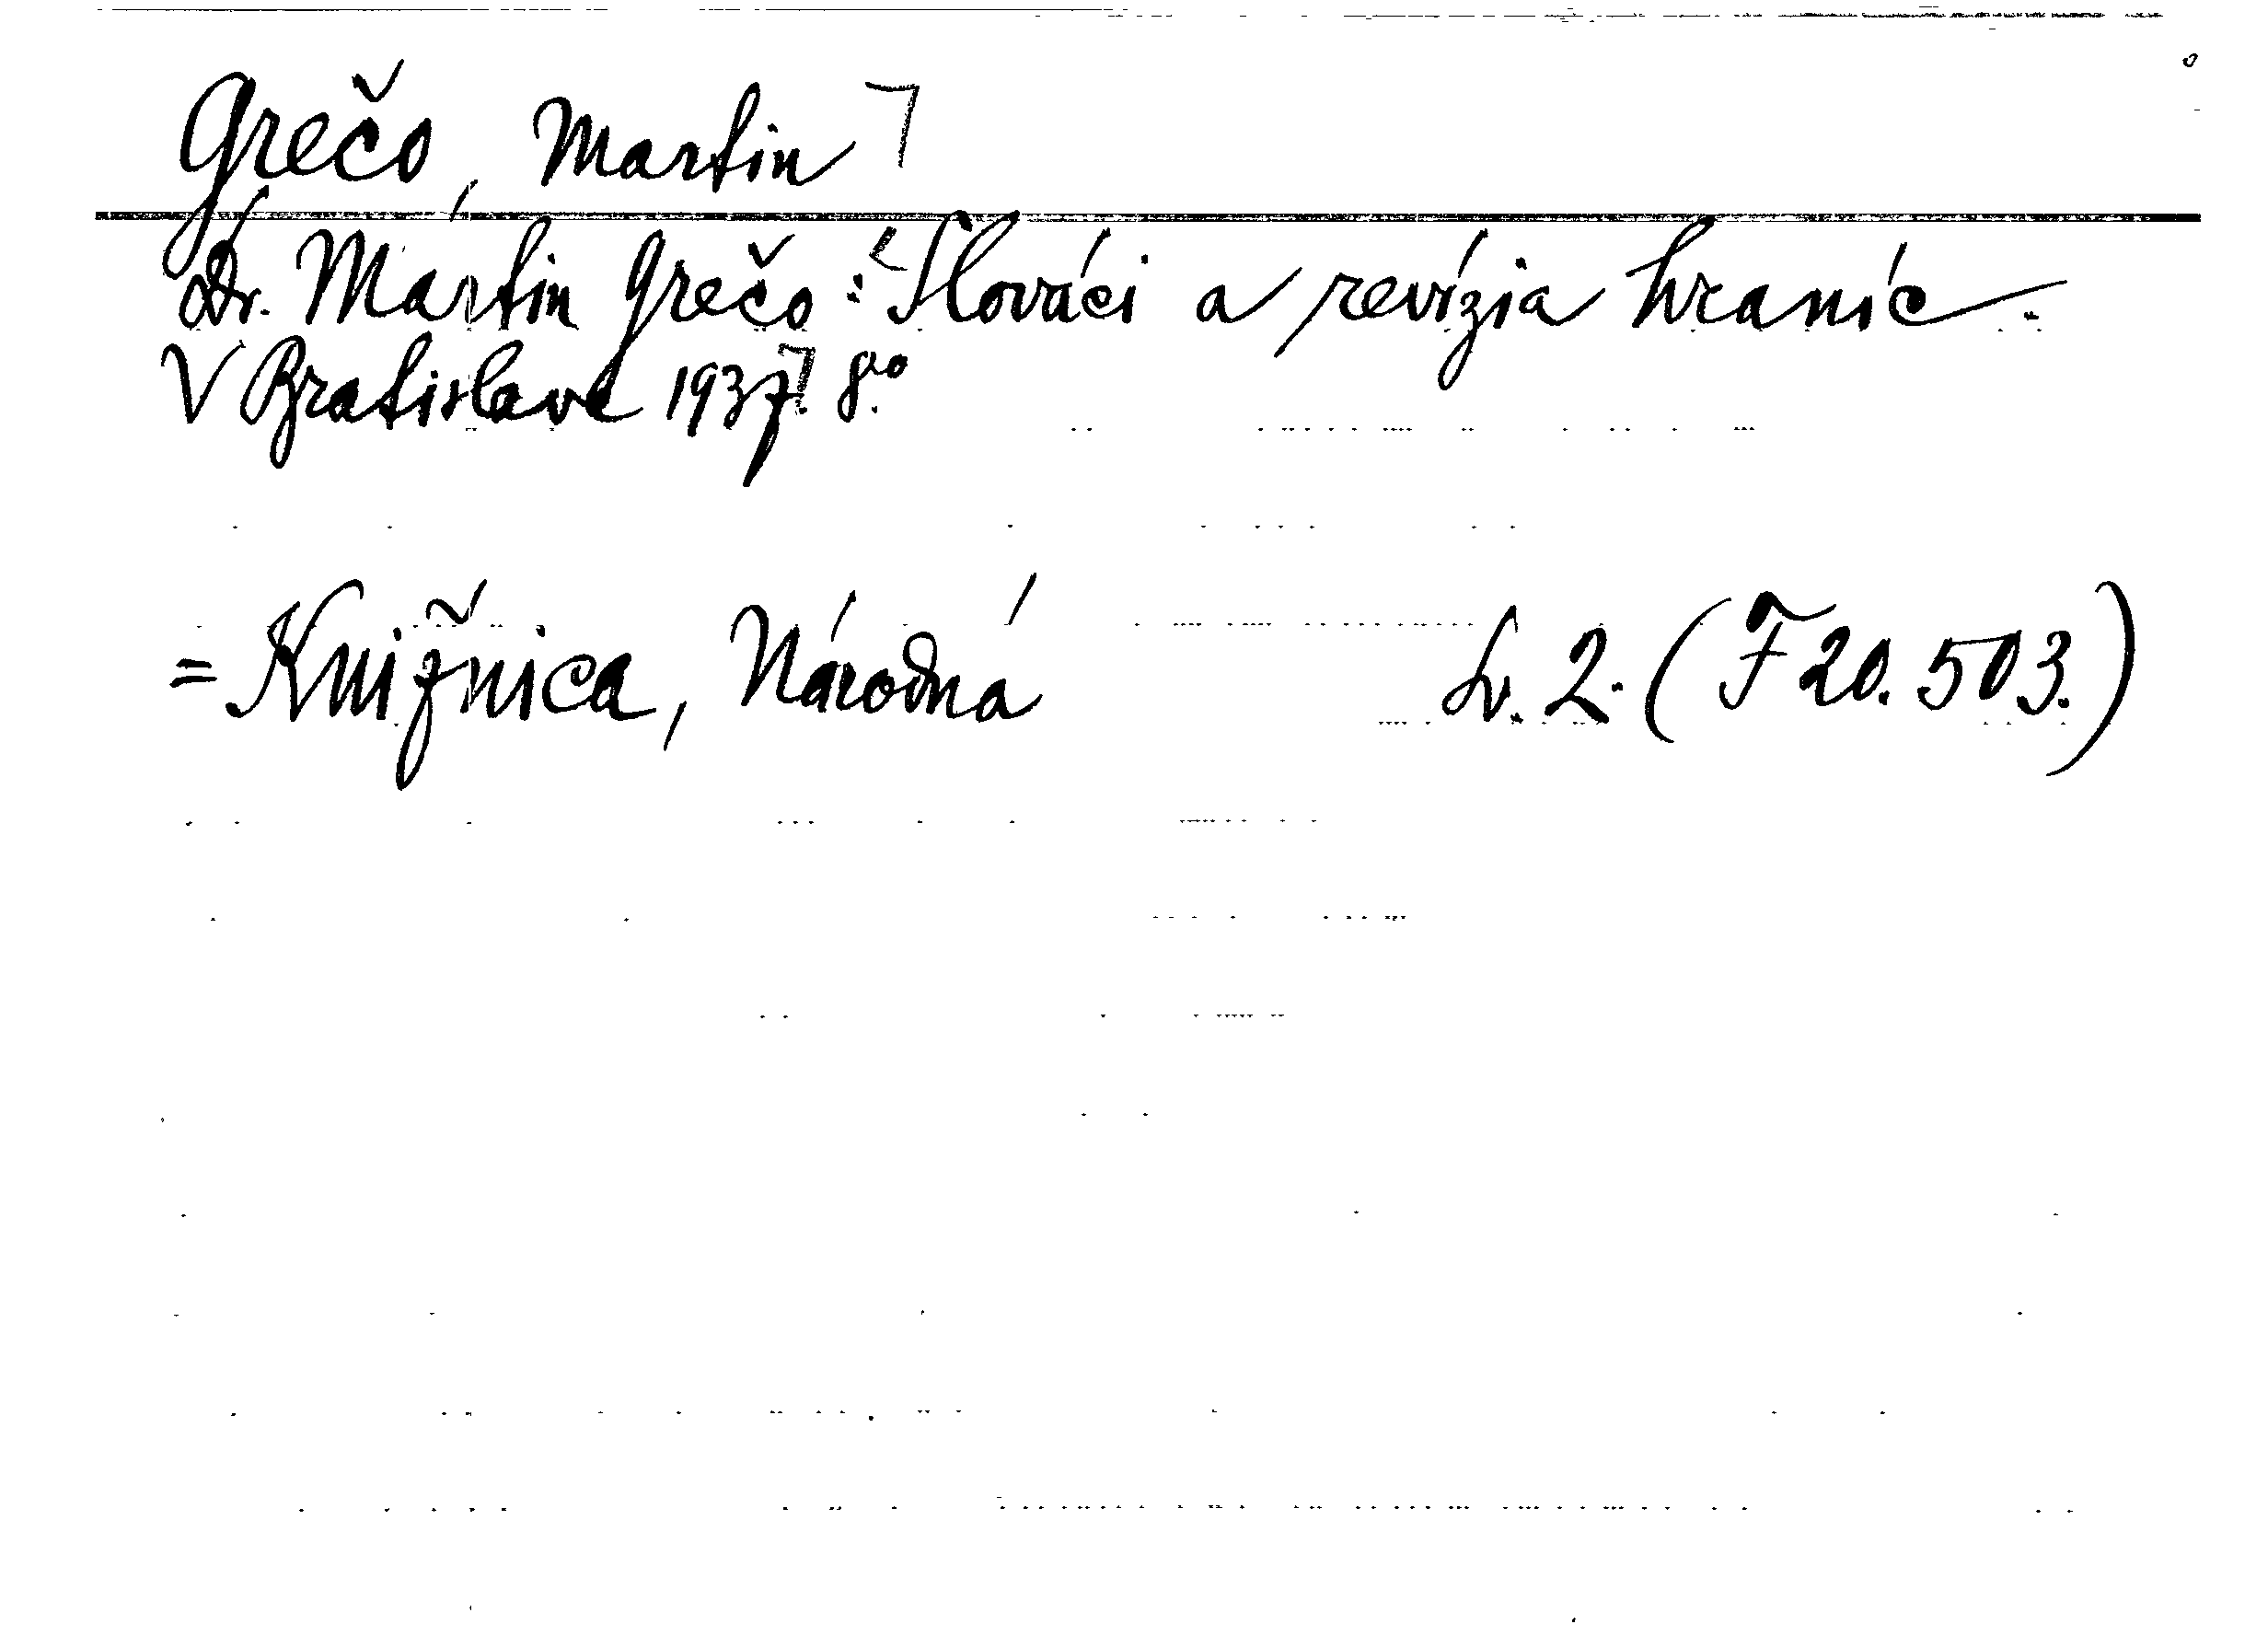 Grečo, Martin
Dr. Martin Grečo: Slováci a revízia hraníc.
V Bratislave 1937. 8.º
= Knižnica, Národná Sv. 2. (F 20.503.)